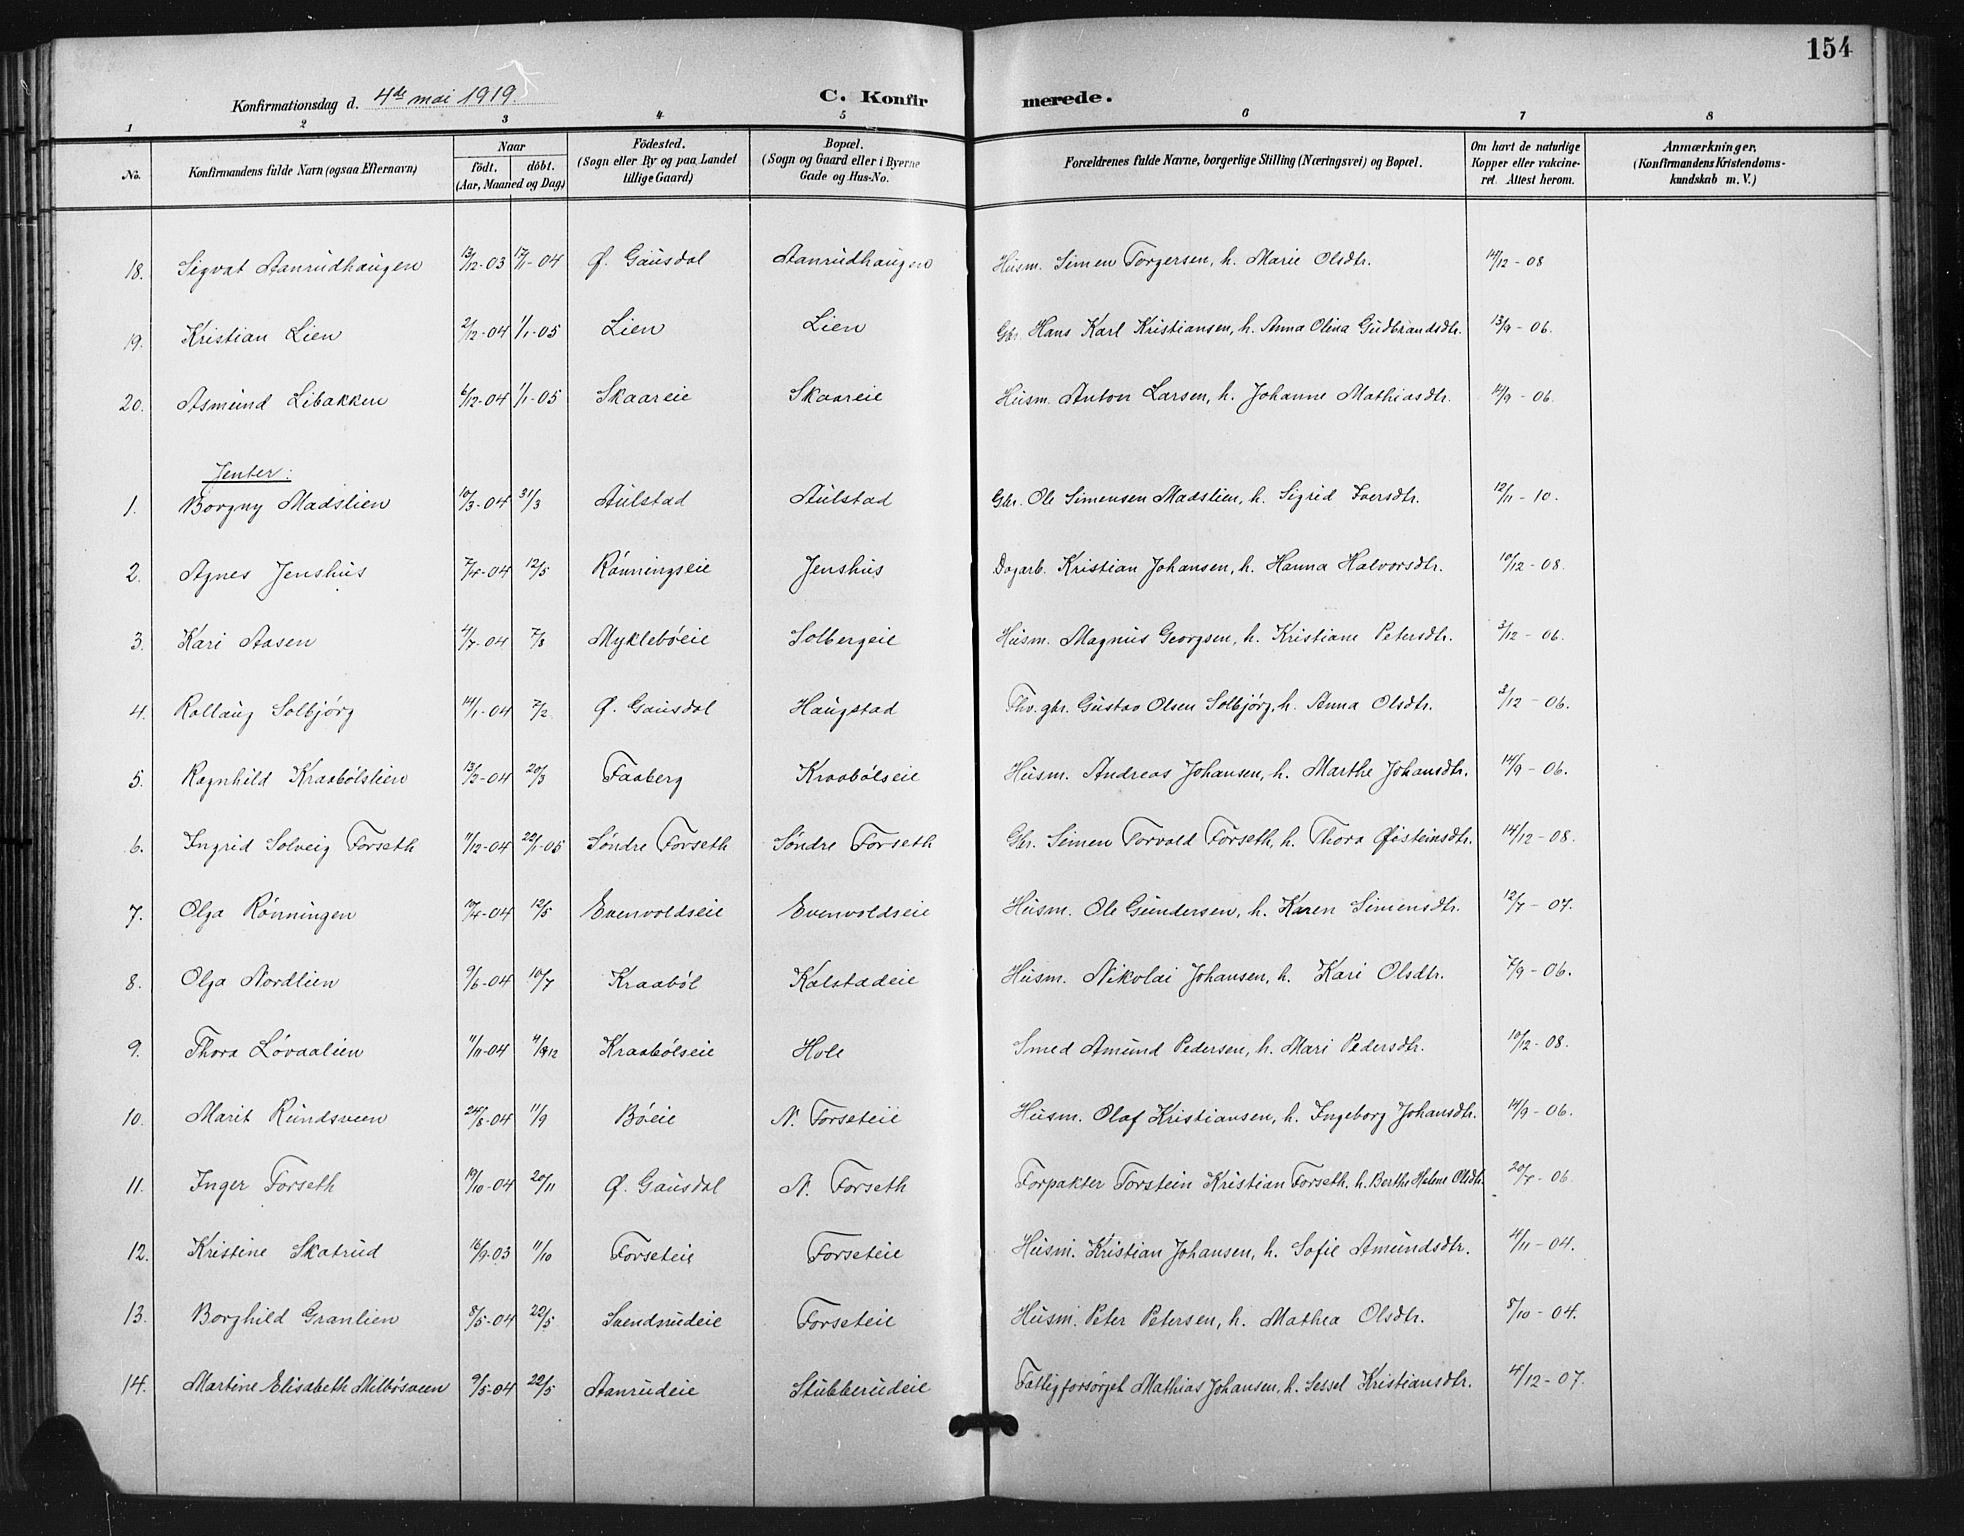 154
Konfirmationsdag d. 4de mai 1919. C. Konfirmerede.
1 2 3 4 5 6 7 8
No. Konfirmandens fulde Navn (ogsaa Efternavn) Naar födt. döbt. (Aar, Maaned og Dag) Födested. (Sogn eller By og paa Landet tillige Gaard) Bopæl. (Sogn og Gaard eller i Byerne Gade og Hus-No. Forældrenes fulde Navne, borgerlige Stilling (Næringsvei) og Bopæl. Om havt de naturlige Kopper eller vakcineret. Attest herom. Anmærkninger, (Konfirmandens Kristendomskundskab m. V.)
18. Sigvat Aanrudhaugen 13/12-03 17/1-04 Ø. Gausdal Aanrudhaugen Husm. Simen Torgersen, h. Marie Olsdtr. 14/12-08
19. Kristian Lien 2/12-04 1/1-05 Lien Lien Gbr. Hans Karl Kristiansen, h. Anna Olina Gudbrandsdtr. 13/9-06.
20. Asmund Libakken 6/12-04 1/1-05 Skaareie Skaareie Husm. Anton Larsen, h. Johanne Mathiasdtr. 14/9-06.
Jenter:
1. Borgny Madslien 10/3-04 31/3 Aulstad Aulstad Gbr. Ole Simensen Madslien, h. Sigrid Iversdtr. 12/11-10.
2. Agnes Jenshus 7/4-04 12/5 Rönningseie Jenshus Dagarb. Kristian Johansen, h. Hanna Halvorsdtr. 10/12-08.
3. Kari Aasen 4/7-04 7/8 Mykleböeie Solbergeie Husm. Magnus Georgsen, h. Kristiane Petersdtr. 3/12-06.
4. Rollaug Solbjörg 14/1-04 7/2 Ø. Gausdal Haugstad Thv. gbr. Gustav Olsen Solbjörg, h. Anna Olsdtr. 3/12-06.
5. Ragnhild Kraabölslien 13/2-04 20/3 Faaberg Kraabölseie Husm. Andreas Johansen, h. Marthe Johansdtr. 14/9-06.
6. Ingrid Solveig Forseth 11/12-04 22/1-05 Söndre Forseth Söndre Forseth Gbr. Simen Torvald Forseth, h. Thora Østeinsdtr. 14/12-08.
7. Olga Rönningen 10/4-04 12/5 Evenvoldseie Evenvoldseie Husm. Ole Gundersen, h. Karen Simensdtr. 12/7-07.
8. Olga Nordlien 9/6-04 10/7 Kraaböl Kalstadeie Husm. Nikolai Johansen, h. Kari Olsdtr. 7/9-06.
9. Thora Lövaalien 11/11-04 Kraabölseie Hole Smed Amund Pedersen, h. Mari Pedersdtr. 10/12-08.
10. Marit Rundsveen 24/8-04 11/9 Böeie N. Forseteie Husm. Olaf Kristiansen, h. Ingeborg Johansdtr. 14/9-06.
11. Inger Forseth 19/10-04 20/11 Ø. Gausdal N. Forseth Forpakter Torstein Kristian Forseth. h. Berthe Helene Olsdtr. 20/7-06
12. Kristine Skatrud 16/9-03 11/10 Forseteie Forseteie Husm. Kristian Johansen, h. Sofie Amundsdtr. 4/11-04.
13. Borghild Granlien 8/5-04 22/5 Svendsrudeie Forseteie Husm. Peter Petersen, h. Mathea Olsdtr. 8/10-04.
14. Martine Elisabeth Melbösveen 9/5-04 22/5 Aanrudeie Stubberudeie Fattigforsörget Mathias Johansen, h. Sessel Kristiansdtr. 4/12-07.